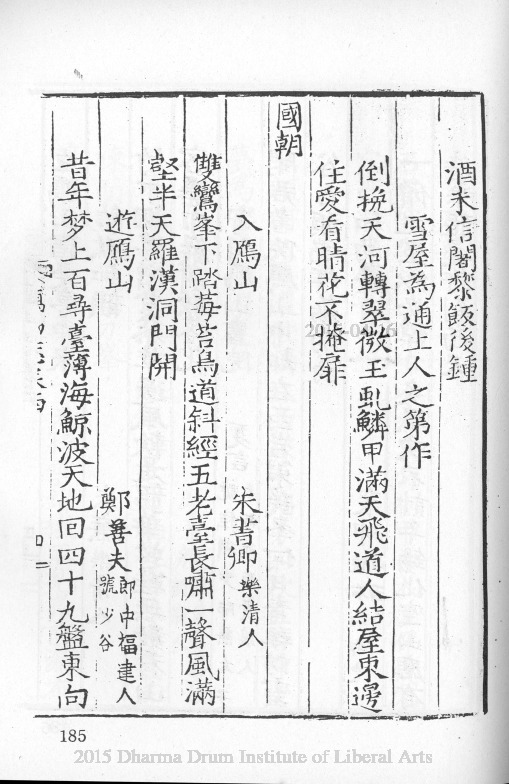 酒未信闍黎飯後鍾
雪屋為通上人之第作
倒挽天河轉翠微玉虬鱗甲滿天飛道人結屋東邊
住愛看晴花不掩扉
國朝
入鴈山
朱著卿樂清人
雙鸞峯下踏莓苔鳥道斜經五老臺長嘯一聲風滿
壑半天羅漢洞門開
遊鴈山
鄭善夫郎中福建人號少谷
昔年梦上百尋臺薄海鯨波天地回四十九盤東向
185
2015 Dharma Drum Institute of Liberal Arts